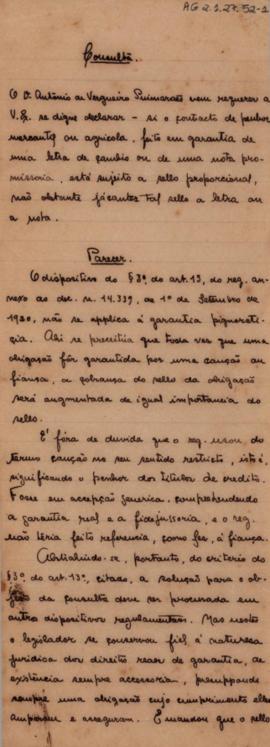 AG 2.1.27.52-1
Consulta.
O Dr. Antonio de Vergueiro Guimarães vem requerer a
V. Ex. se digne declarar - si o contacto de penhor
mercantil ou agricola, feito em garantia de
uma letra de cambio ou de uma nota pro-
missoria, está sujeito a sello proporcional,
não obstante já contar tal sello a letra ou
a nota.
Parecer.
O dispositivo do § 3º. do art. 13, do reg. an-
nexo ao dec. n. 14.339, de 1º de Setembro de
1920, não se applica á garantia pignorati-
cia. Ahi se preceitúa que toda vez que uma
obrigação fôr garantida por uma caução ou
fiança, a cobrança do sello da obrigação
será augmentada de igual importancia do
sello.
É fóra de duvida que o reg. usou, do
termo caução no seu sentido restricto, isto é,
significando o penhor dos titulos de credito.
Fosse em accepção generica, comprehendendo
a garantia real e a fidejussoria, e o reg.
não teria feito referencia, como fez, á fiança.
Abstrahindo-se, portanto, do criterio do
§ 3º. do art. 13º, citado, a solução para o ob-
jecto da consulta deve ser procurada em
outro dispositivo regulamentar. Mas nesto
o legislador se conservou fiel á natureza
juridica dos direitos reaes de garantia, de
existencia sempre accessoria, presuppondo
sempre uma obrigação cujo cumprimento elles
amparam e asseguram. E mandou que o sello